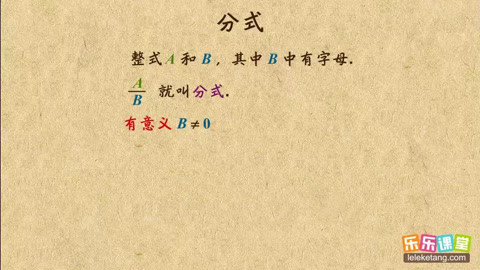 分式
整式 A 和 B ，其中 B 中有字母.
A/B 就叫分式.
有意义 B ≠ 0
乐乐课堂
leleketang.com